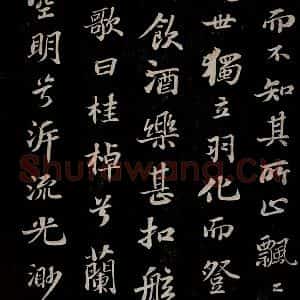 而不知其所止飄〻
世獨立羽化而登
飲酒樂甚扣舷
歌曰桂棹兮蘭
空明兮泝流光渺
Shufawang.Cn